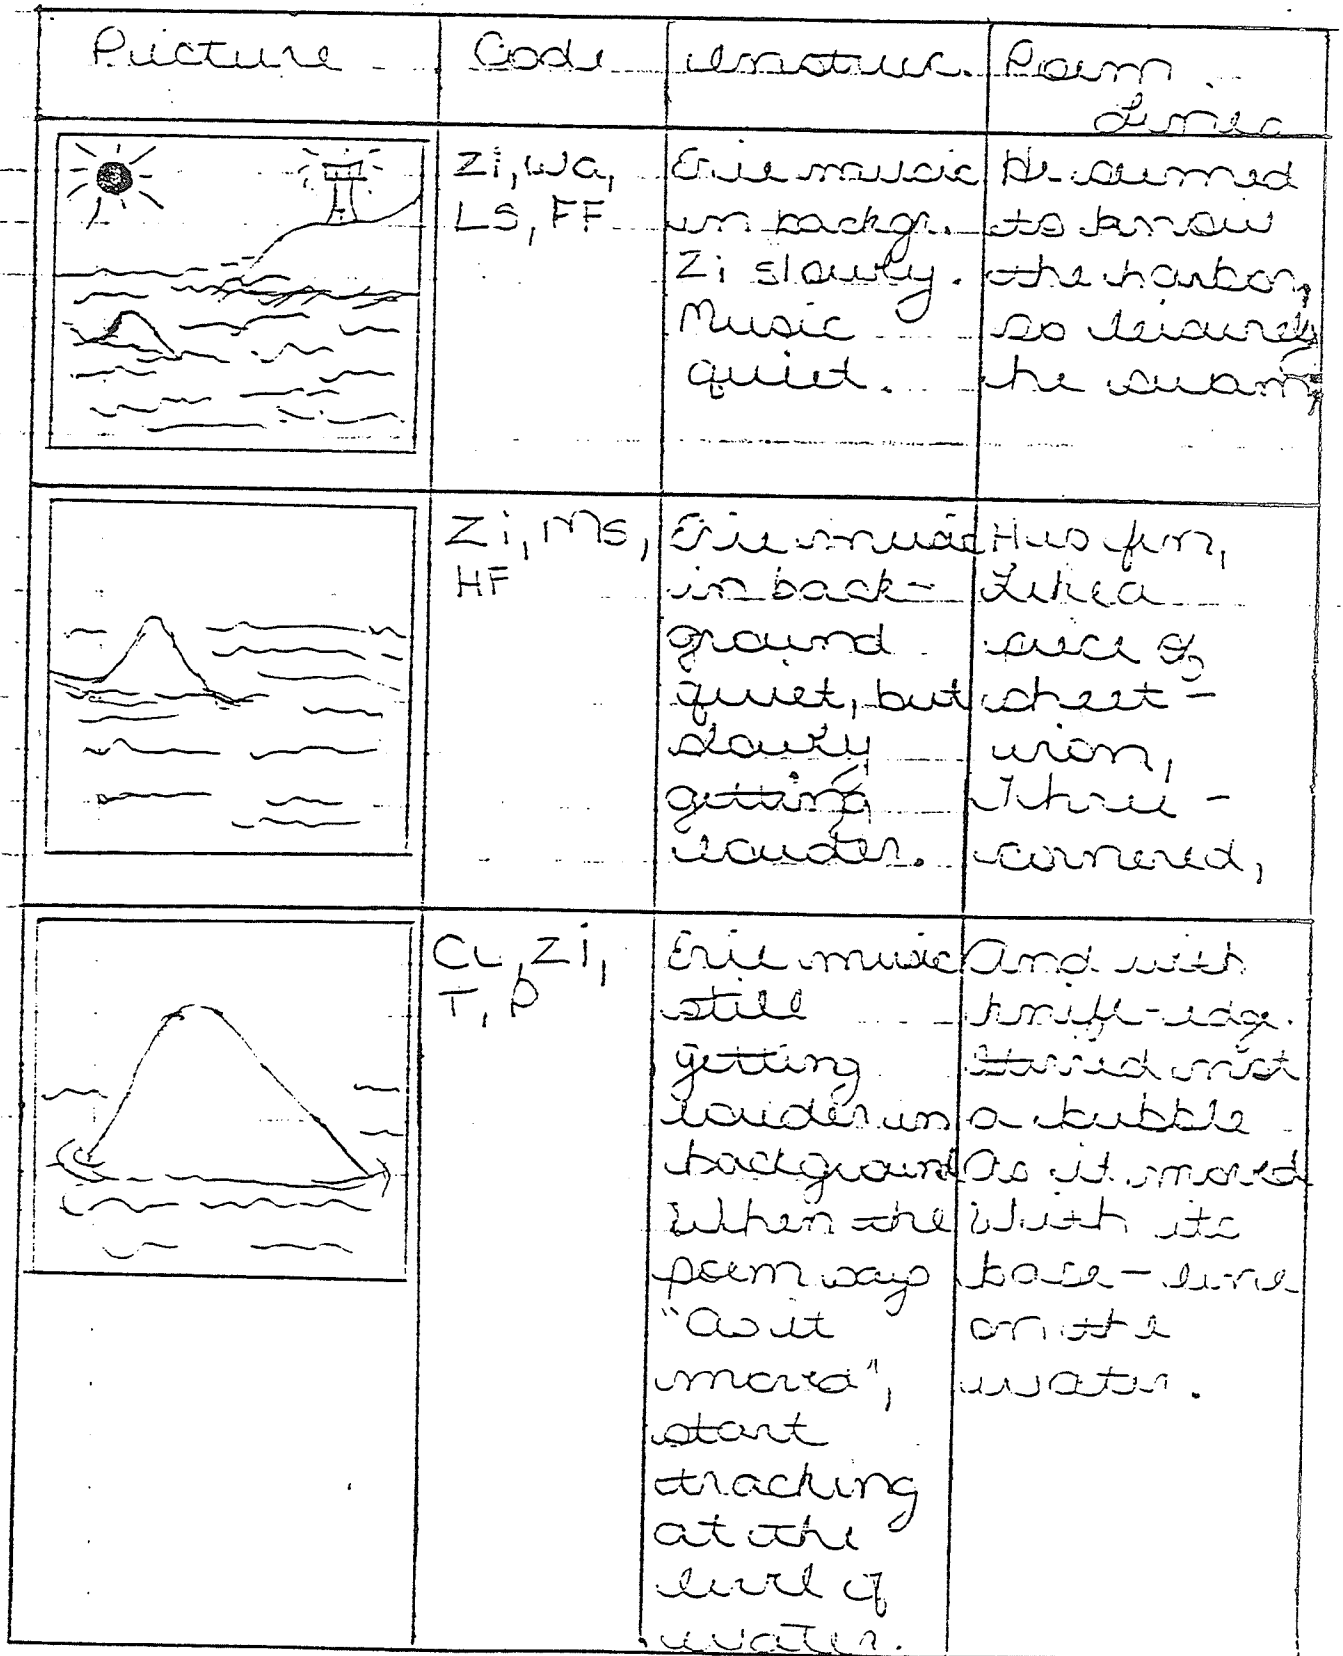 Picture
Code
instruc.
Poem
Lines
Zi, Wa,
LS, FF
Erie music
in backgr.
Zi slowly.
Music
quiet.
He seemed
to know
the harbor,
so leisurely
he swam;
Zi, MS,
HF
Erie music
in back-
ground
quiet, but
slowly
getting
louder.
His fin,
Like a
piece of
sheet-
iron,
Three-
cornered,
Cu, Zi,
T, P
Erie music
still
getting
louder in
background
When the
poem says
"As it
moved",
start
tracking
at the
level of
water.
And with
knife-edge.
Stirred not
a bubble
As it moved
With its
base-line
on the
water.